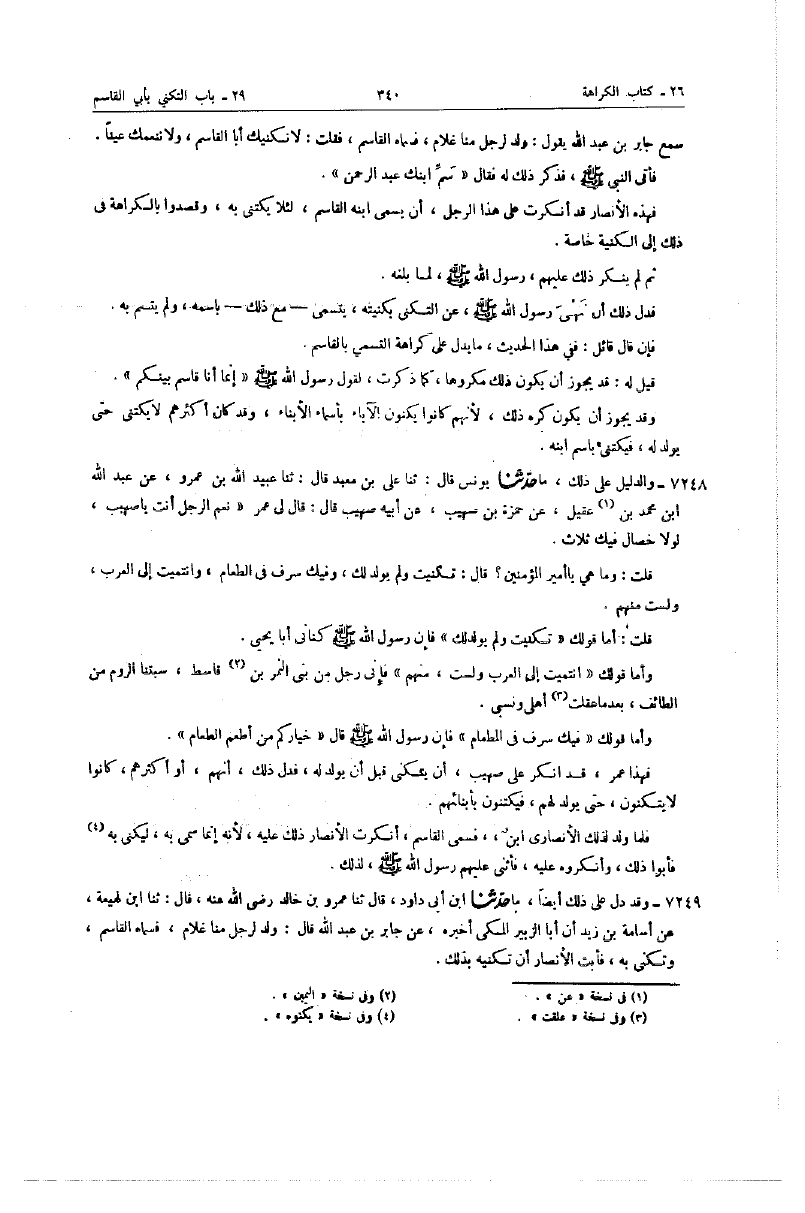 ٢٦ - كتاب الكراهة ٣٤٠ ٢٩ - باب التكني بأبي القاسم
سمع جابر بن عبد الله يقول : ولد لرجل منا غلام ، فسماه القاسم ، فقلت : لانكنيك أبا القاسم ، ولاننعمك عيناً .
فأتى النبي ﷺ ، فذكر ذلك له فقال « سَمِّ ابنك عبد الرحمن » .
فهذه الأنصار قد أنكرت على هذا الرجل ، أن يسمى ابنه القاسم ، لئلا يكتنى به ، وقصدوا بالكراهة فى
ذلك إلى الكنية خاصة .
ثم لم ينكر ذلك عليهم ، رسول الله ﷺ ، لما بلغه .
فدل ذلك أن نَهْىَ رسول الله ﷺ ، عن التكنى بكنيته ، يتسمى — مع ذلك — باسمه ، ولم يتسم به .
فإن قال قائل : ففي هذا الحديث ، مايدل على كراهة التسمي بالقاسم .
قيل له : قد يجوز أن يكون ذلك مكروها ، كما ذكرت ، لقول رسول الله ﷺ « إنما أنا قاسم بينكم » .
وقد يجوز أن يكون كره ذلك ، لأنهم كانوا يكنون الآباء بأسماء الأبناء ، وقد كان أكثرهم لايكتنى حتى
يولد له ، فيكتنى باسم ابنه .
٧٢٤٨ - والدليل على ذلك ، ما حدّثنا يونس قال : ثنا على بن معبد قال : ثنا عبيد الله بن عمرو ، عن عبد الله
ابن محمد بن (١) عقيل ، عن حمزة بن صهيب ، عن أبيه صهيب قال : قال لى عمر « نعم الرجل أنت ياصهيب ،
لولا خصال فيك ثلاث .
قلت : وما هي ياأمير المؤمنين ؟ قال : تكنيت ولم يولد لك ، وفيك سرف فى الطعام ، وانتميت إلى العرب ،
ولست منهم .
قلت : أما قولك « تكنيت ولم يولدلك » فإن رسول الله ﷺ كنانى أبا يحيى .
وأما قولك « انتميت إلى العرب ولست ، منهم » فإنى رجل من بنى النمر بن (٢) قاسط ، سبتنا الروم من
الطائف ، بعدماعقلت (٣) أهلى ونسبي .
وأما قولك « فيك سرف فى الطعام » فإن رسول الله ﷺ قال « خياركم من أطعم الطعام » .
فهذا عمر ، قد انكر على صهيب ، أن يتكنى قبل أن يولد له ، فدل ذلك ، أنهم ، أو أكثرهم ، كانوا
لايتكنون ، حتى يولد لهم ، فيكتنون بأبنائهم .
فلما ولد لذلك الأنصارى ابن ، ، فسمى القاسم ، أنكرت الأنصار ذلك عليه ، لأنه إنما سمى به ، ليكنى به (٤)
فأبوا ذلك ، وأنكروه عليه ، فأثنى عليهم رسول الله ﷺ ، لذلك .
٧٢٤٩ - وقد دل على ذلك أيضاً ، ما حدّثنا ابن أبى داود ، قال ثنا عمرو بن خالد رضى الله عنه ، قال : ثنا ابن لهيعة ،
عن أسامة بن زيد أن أبا الزبير المكى أخبره ، عن جابر بن عبد الله قال : ولد لرجل منا غلام ، فسماه القاسم ،
وتكنى به ، فأبت الأنصار أن تكنيه بذلك .
(١) فى نسخة « عن » . (٢) وفى نسخة « اليمن » .
(٣) وفى نسخة « علقت » . (٤) وفى نسخة « يكنوه » .